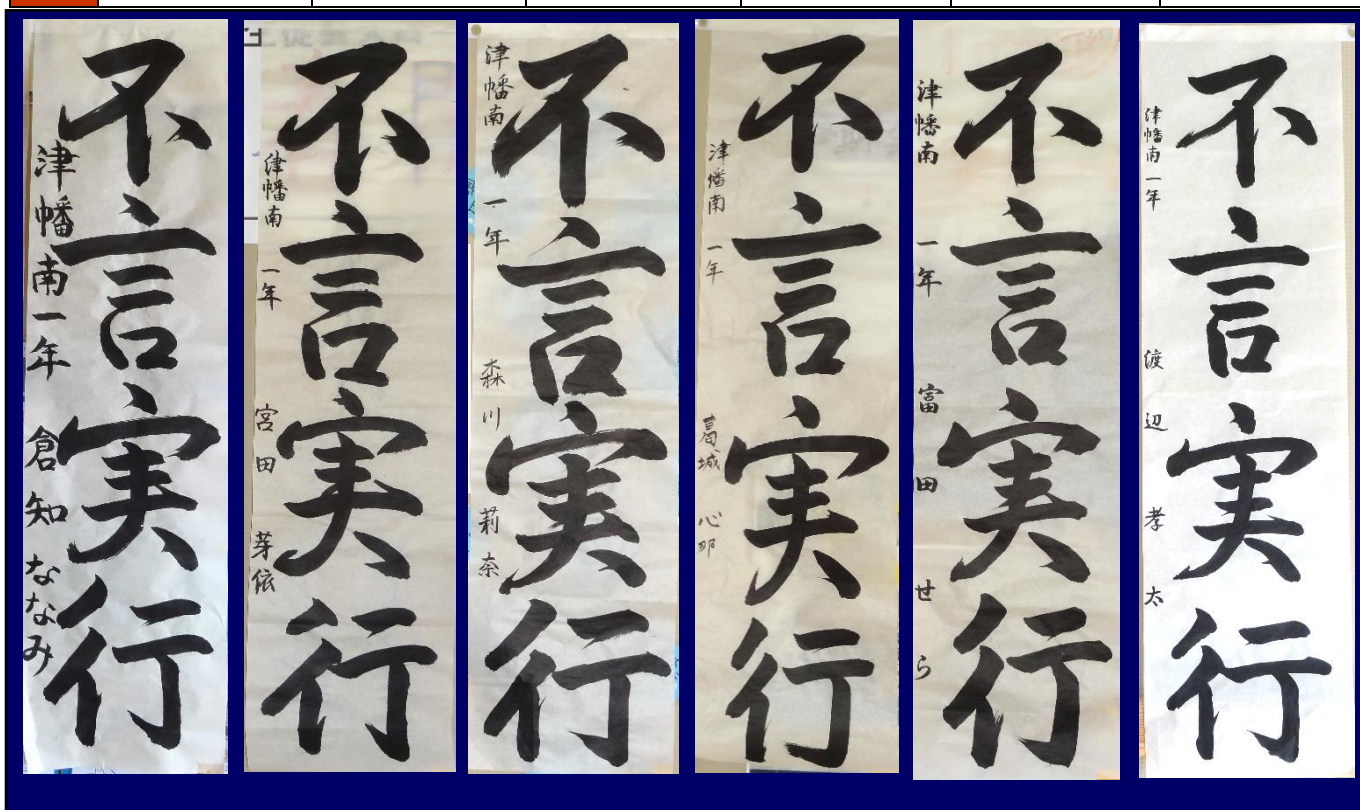 不言実行
津幡南一年 倉知ななみ
不言実行
津幡南 一年 宮田 芽依
不言実行
津幡南 一年 森川 莉奈
不言実行
津幡南 一年 葛城 心明
不言実行
津幡南 一年 富田 せら
不言実行
津幡南一年 渡辺 孝太